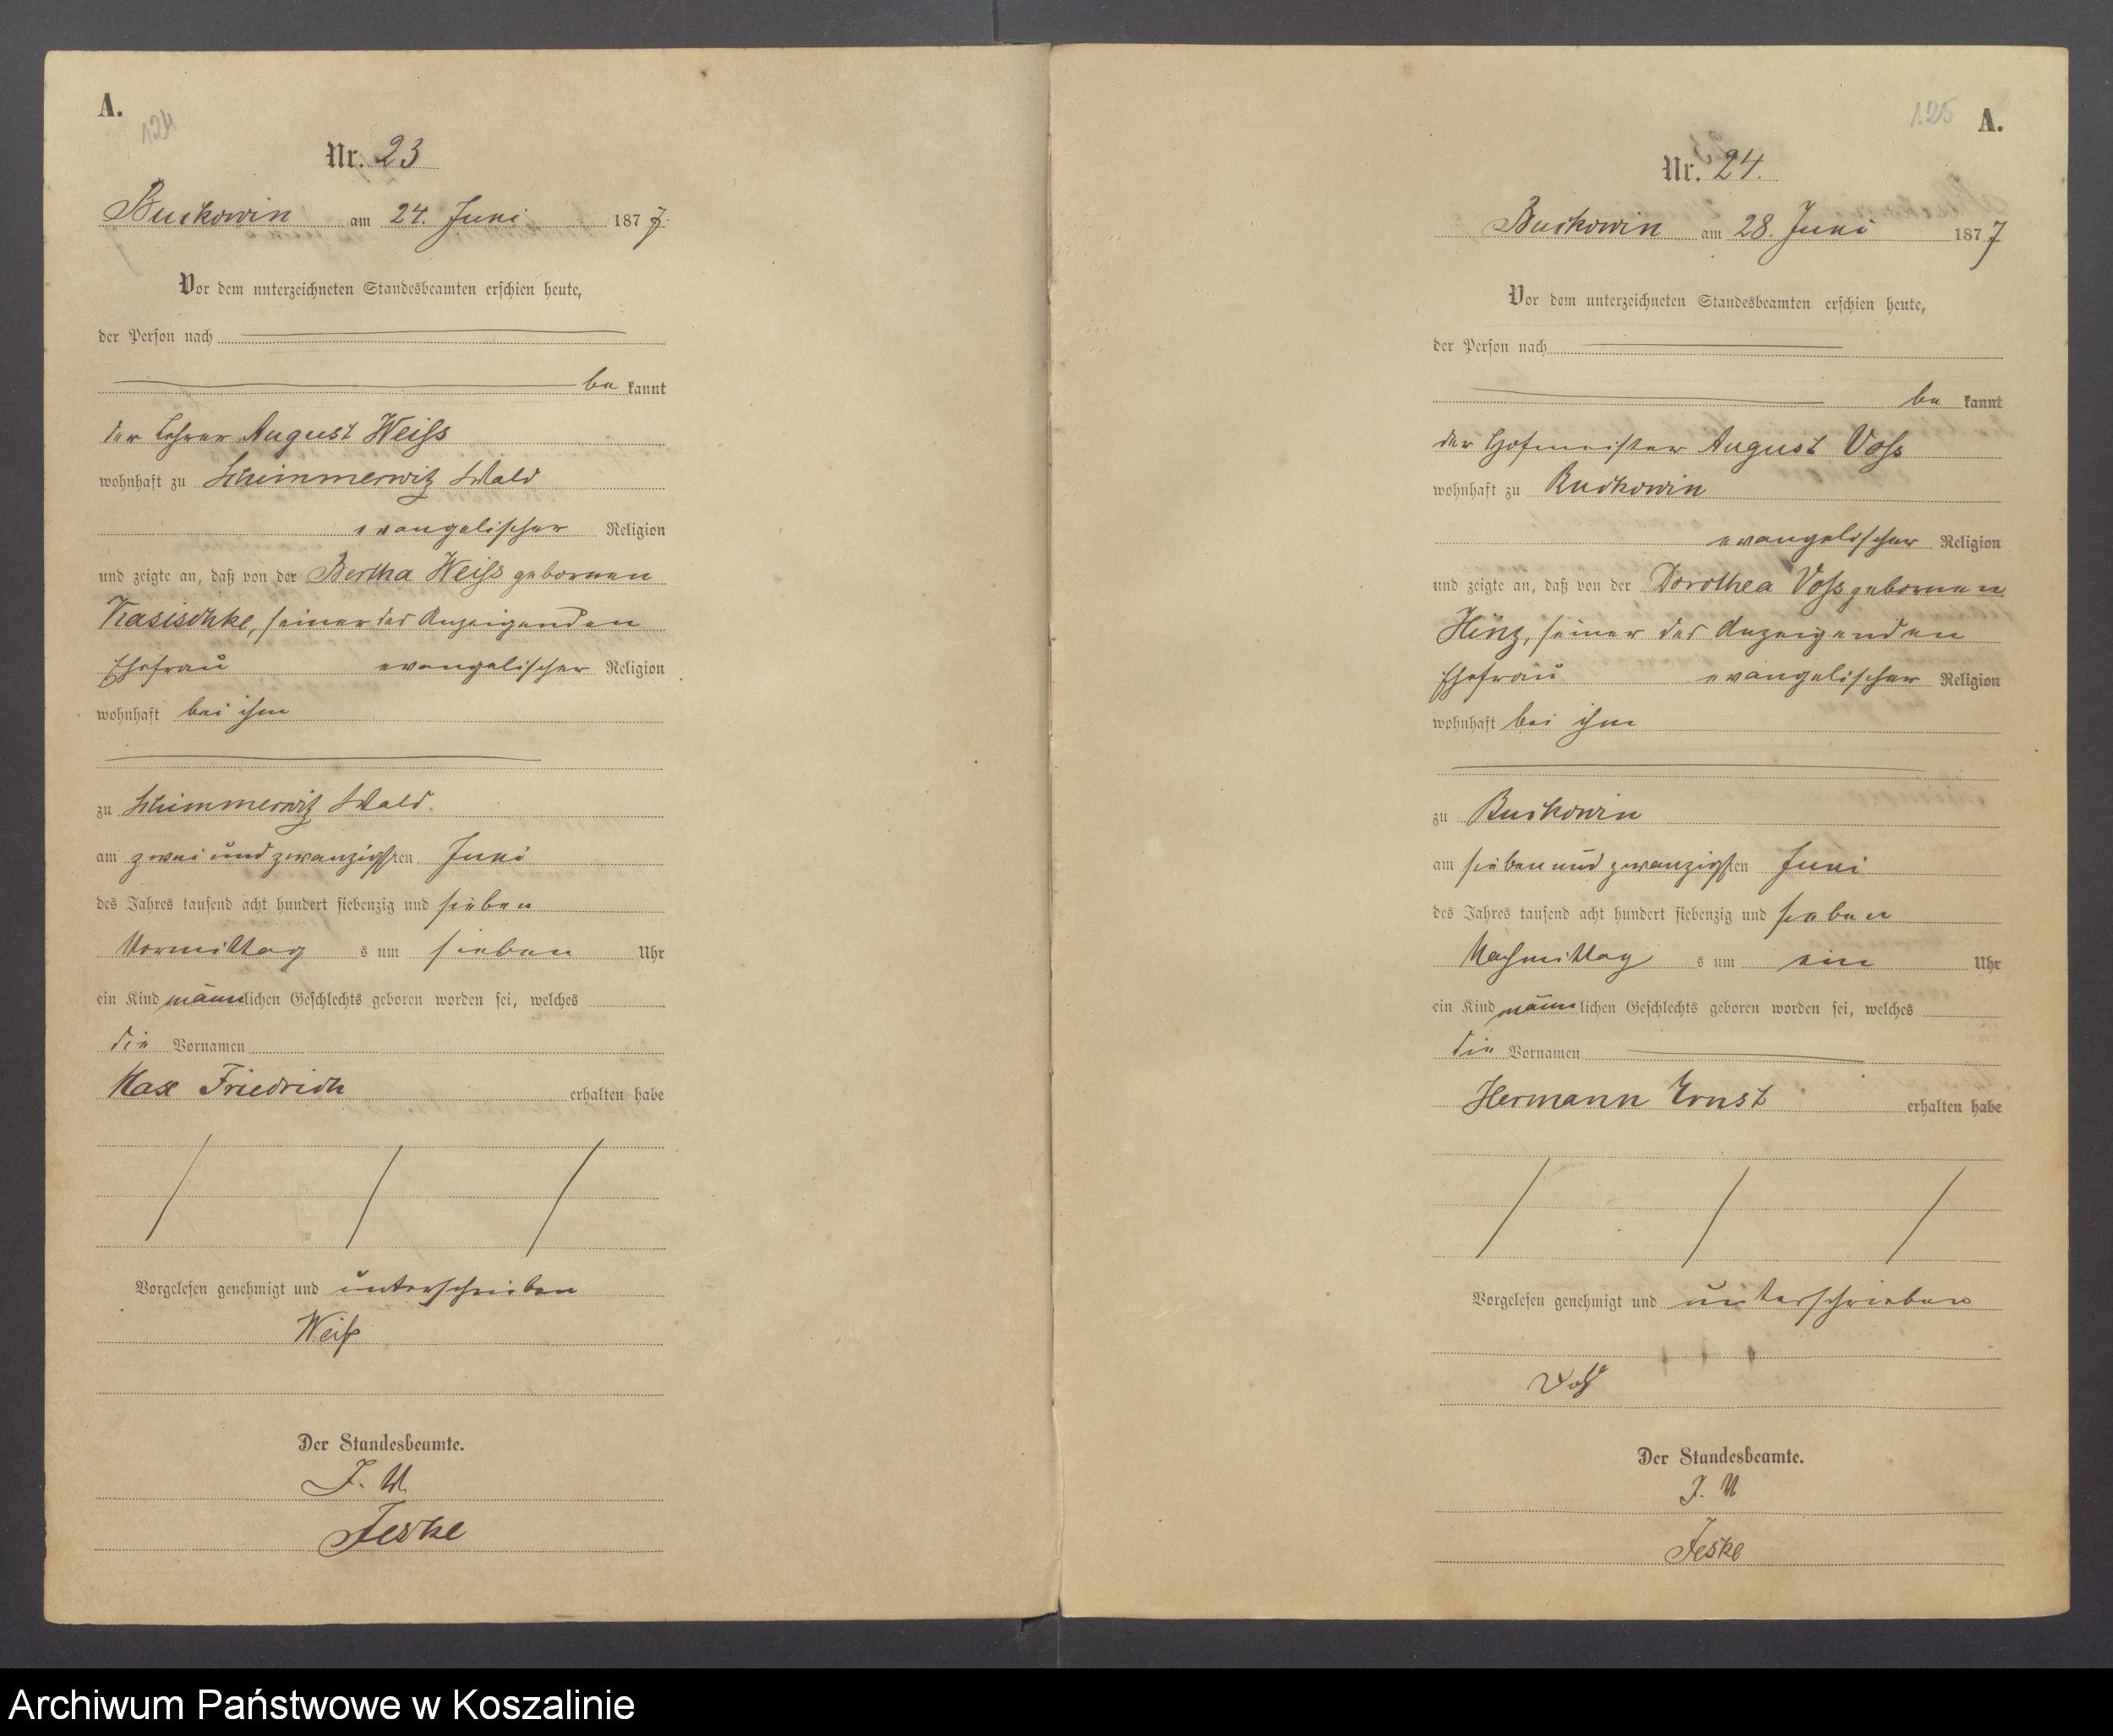 A.
124
Nr. 23
Buckowin am 24. Juni 1877.
Vor dem unterzeichneten Standesbeamten erschien heute,
der Person nach
be kannt
der Lehrer August Weiss
wohnhaft zu Schimmerwitz Wald
evangelischer Religion
und zeigte an, daß von der Bertha Weiss gebornen
Kasischke, seiner des Anzeigenden
Ehefrau evangelischer Religion
wohnhaft bei ihm
zu Schimmerwitz Wald.
am zwei und zwanzigsten Juni
des Jahres tausend acht hundert siebenzig und sieben
Vormittag s um sieben Uhr
ein Kind männlichen Geschlechts geboren worden sei, welches
die Vornamen
Max Friedrich erhalten habe
Vorgelesen genehmigt und unterschrieben
Weiß
Der Standesbeamte.
J. V.
Jeske
125
A.
Nr. 24.
Buckowin am 28. Juni 1877
Vor dem unterzeichneten Standesbeamten erschien heute,
der Person nach
be kannt
der Hofmeister August Voss
wohnhaft zu Buckowin
evangelischer Religion
und zeigte an, daß von der Dorothea Voss gebornen
Hinz, seiner des Anzeigenden
Ehefrau evangelischer Religion
wohnhaft bei ihm
zu Buckowin
am sieben und zwanzigsten Juni
des Jahres tausend acht hundert siebenzig und sieben
Nachmittag s um ein Uhr
ein Kind männlichen Geschlechts geboren worden sei, welches
die Vornamen
Hermann Ernst erhalten habe
Vorgelesen genehmigt und unterschrieben
Voß
Der Standesbeamte.
J. V
Jeske
Archiwum Państwowe w Koszalinie